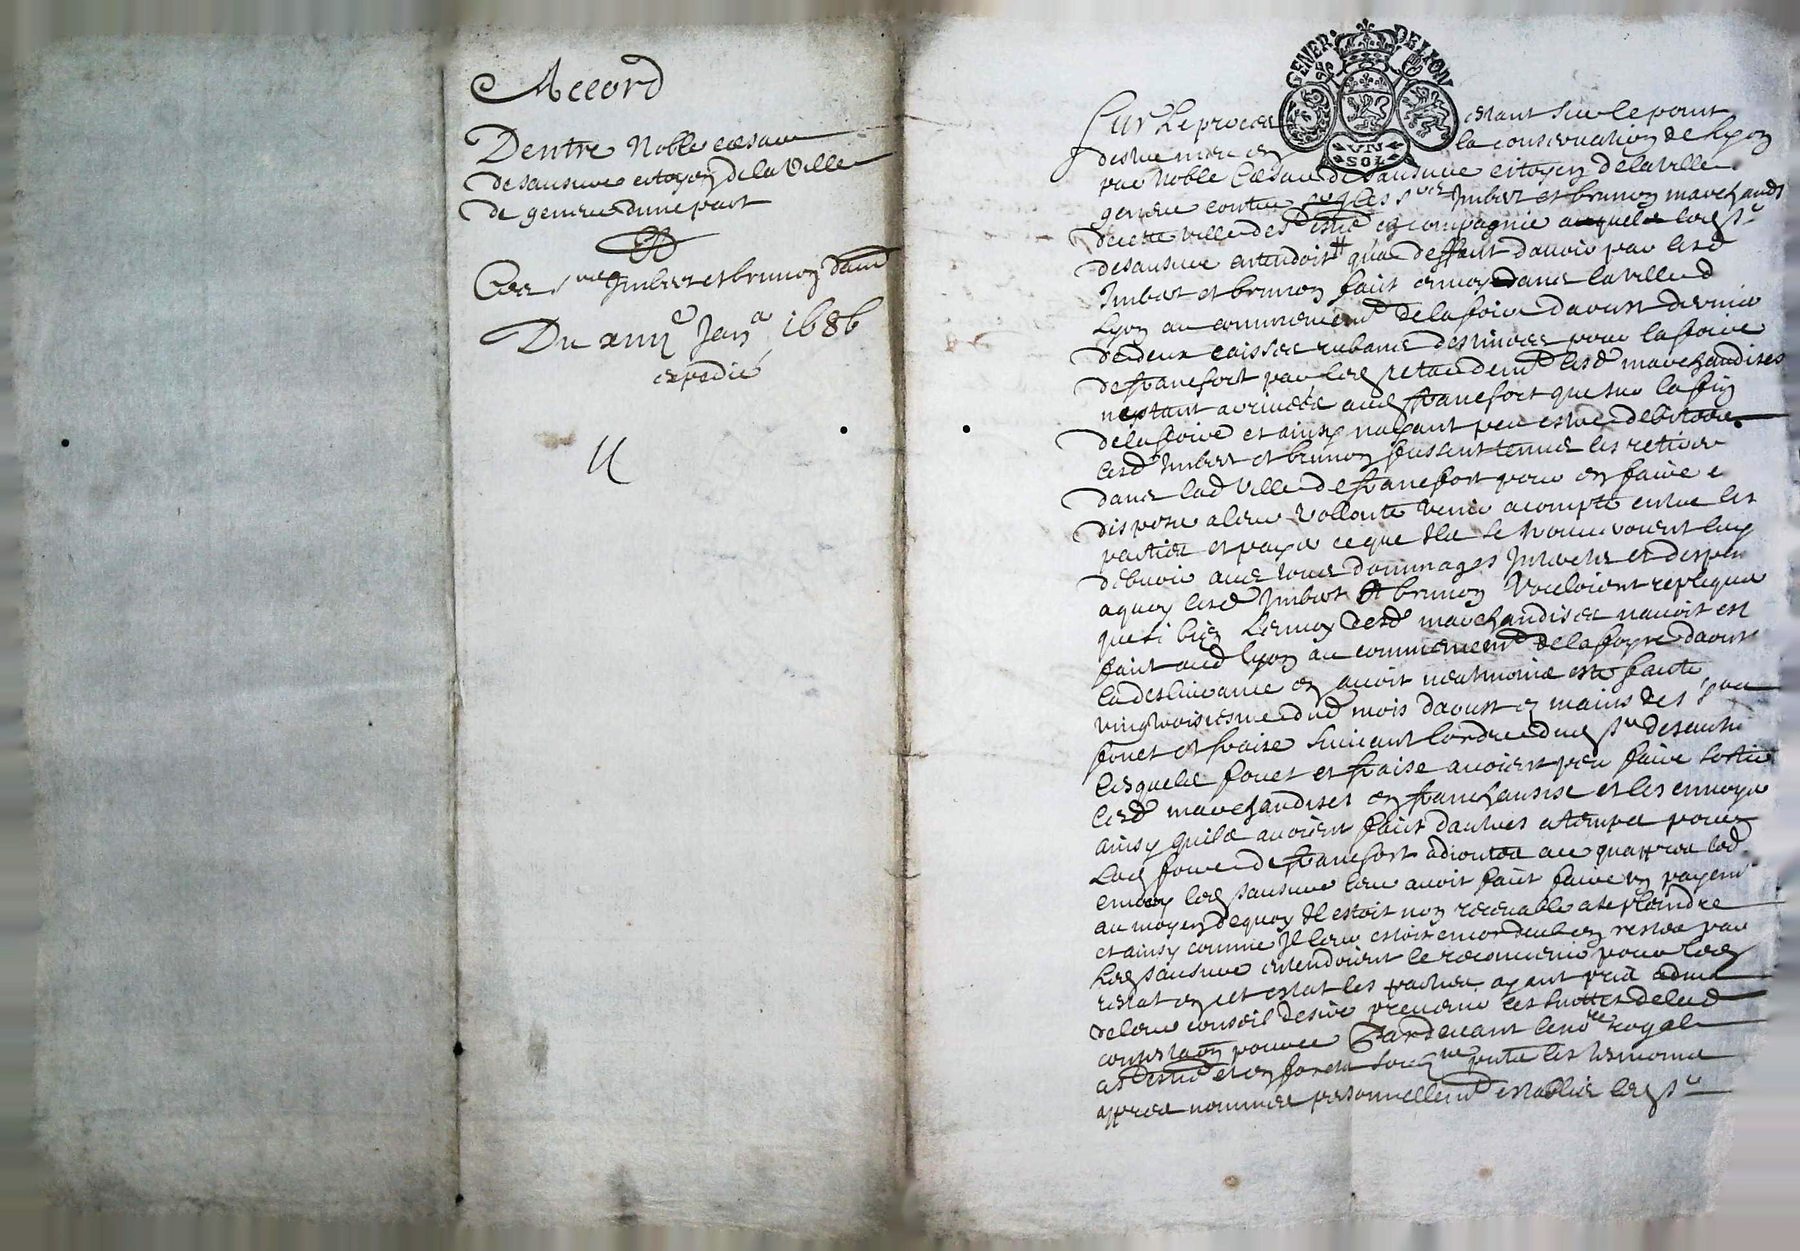 Accord
Dentre Noble Cæsar
desausure citoyen dela Ville
de geneue dune part
Les srs Imbert et brunon dautre
Du xiiije Janr 1686
expedié
GENER. DE LION
UN
SOL
Sur Le proces estant sur le point
destre meu en la conseruation de Lyon
par Noble Cæsar de sausure citoyen dela Ville
geneue contre les srs Imbert et brunon marchands
de cette ville de st en compagnie auquels led sr
desausure entendoit qua deffaut dauoir par lesd
Imbert et brunon fait enuoy dans la ville d
Lyon au commencemt dela foire daoust dernier
de deux caisses rubans destinées pour la foire
de francfort par leq retardemt lesd marchandises
nestant arriuées aud francfort que sur la fin
dela foire et ainsy nayant peu estre debitées
lesd Imbert et brunon fussent tenus les retirer
dans lad Ville de francfort pour en faire e
disposer a leur Vollonté Venir a compte entre les
parties et payer ce que Ils se trouueroient luy
debuoir auec tous dommages Interets et despen
a quoy lesd Imbert et brunon Vouloient repliquer
que si bien Lenuoy desd marchandises nauoit est
fait aud Lyon au commencemt dela foyre daoust
la desliurance en auoit neatmoins esté faite
vingtroisiesme dud mois daoust en mains des srs
fouet et fraise suiuant lordre dud sr desausure
lesquels fouet et fraise auoient peu faire sortir
lesd marchandises en franchise et les enuoyer
ainsy quils auoient fait dautres a temps pour
Lad foire de francfort adioutés que led
enuoy led sausure leur auoit fait faire un payemt
au moyen dequoy Il estoit non receuable a se plaindre
et ainsy comme Il leur estoit encor deub en reste par
Led sausure entendoient le reconuenir pour led
restat en cet estat les parties ayant pris aduis
de leur conseil desire preuenir les suittes de lad
contestaon pource Pardeuant le nore royal
a st et en soubzne pnts les tesmoins
appres nommés personnellemt establis led sr